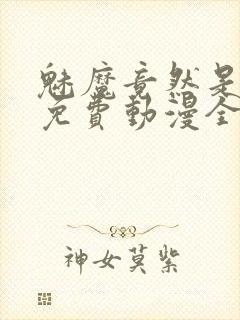 魅魔竟然是
免費動漫全
神女莫紫